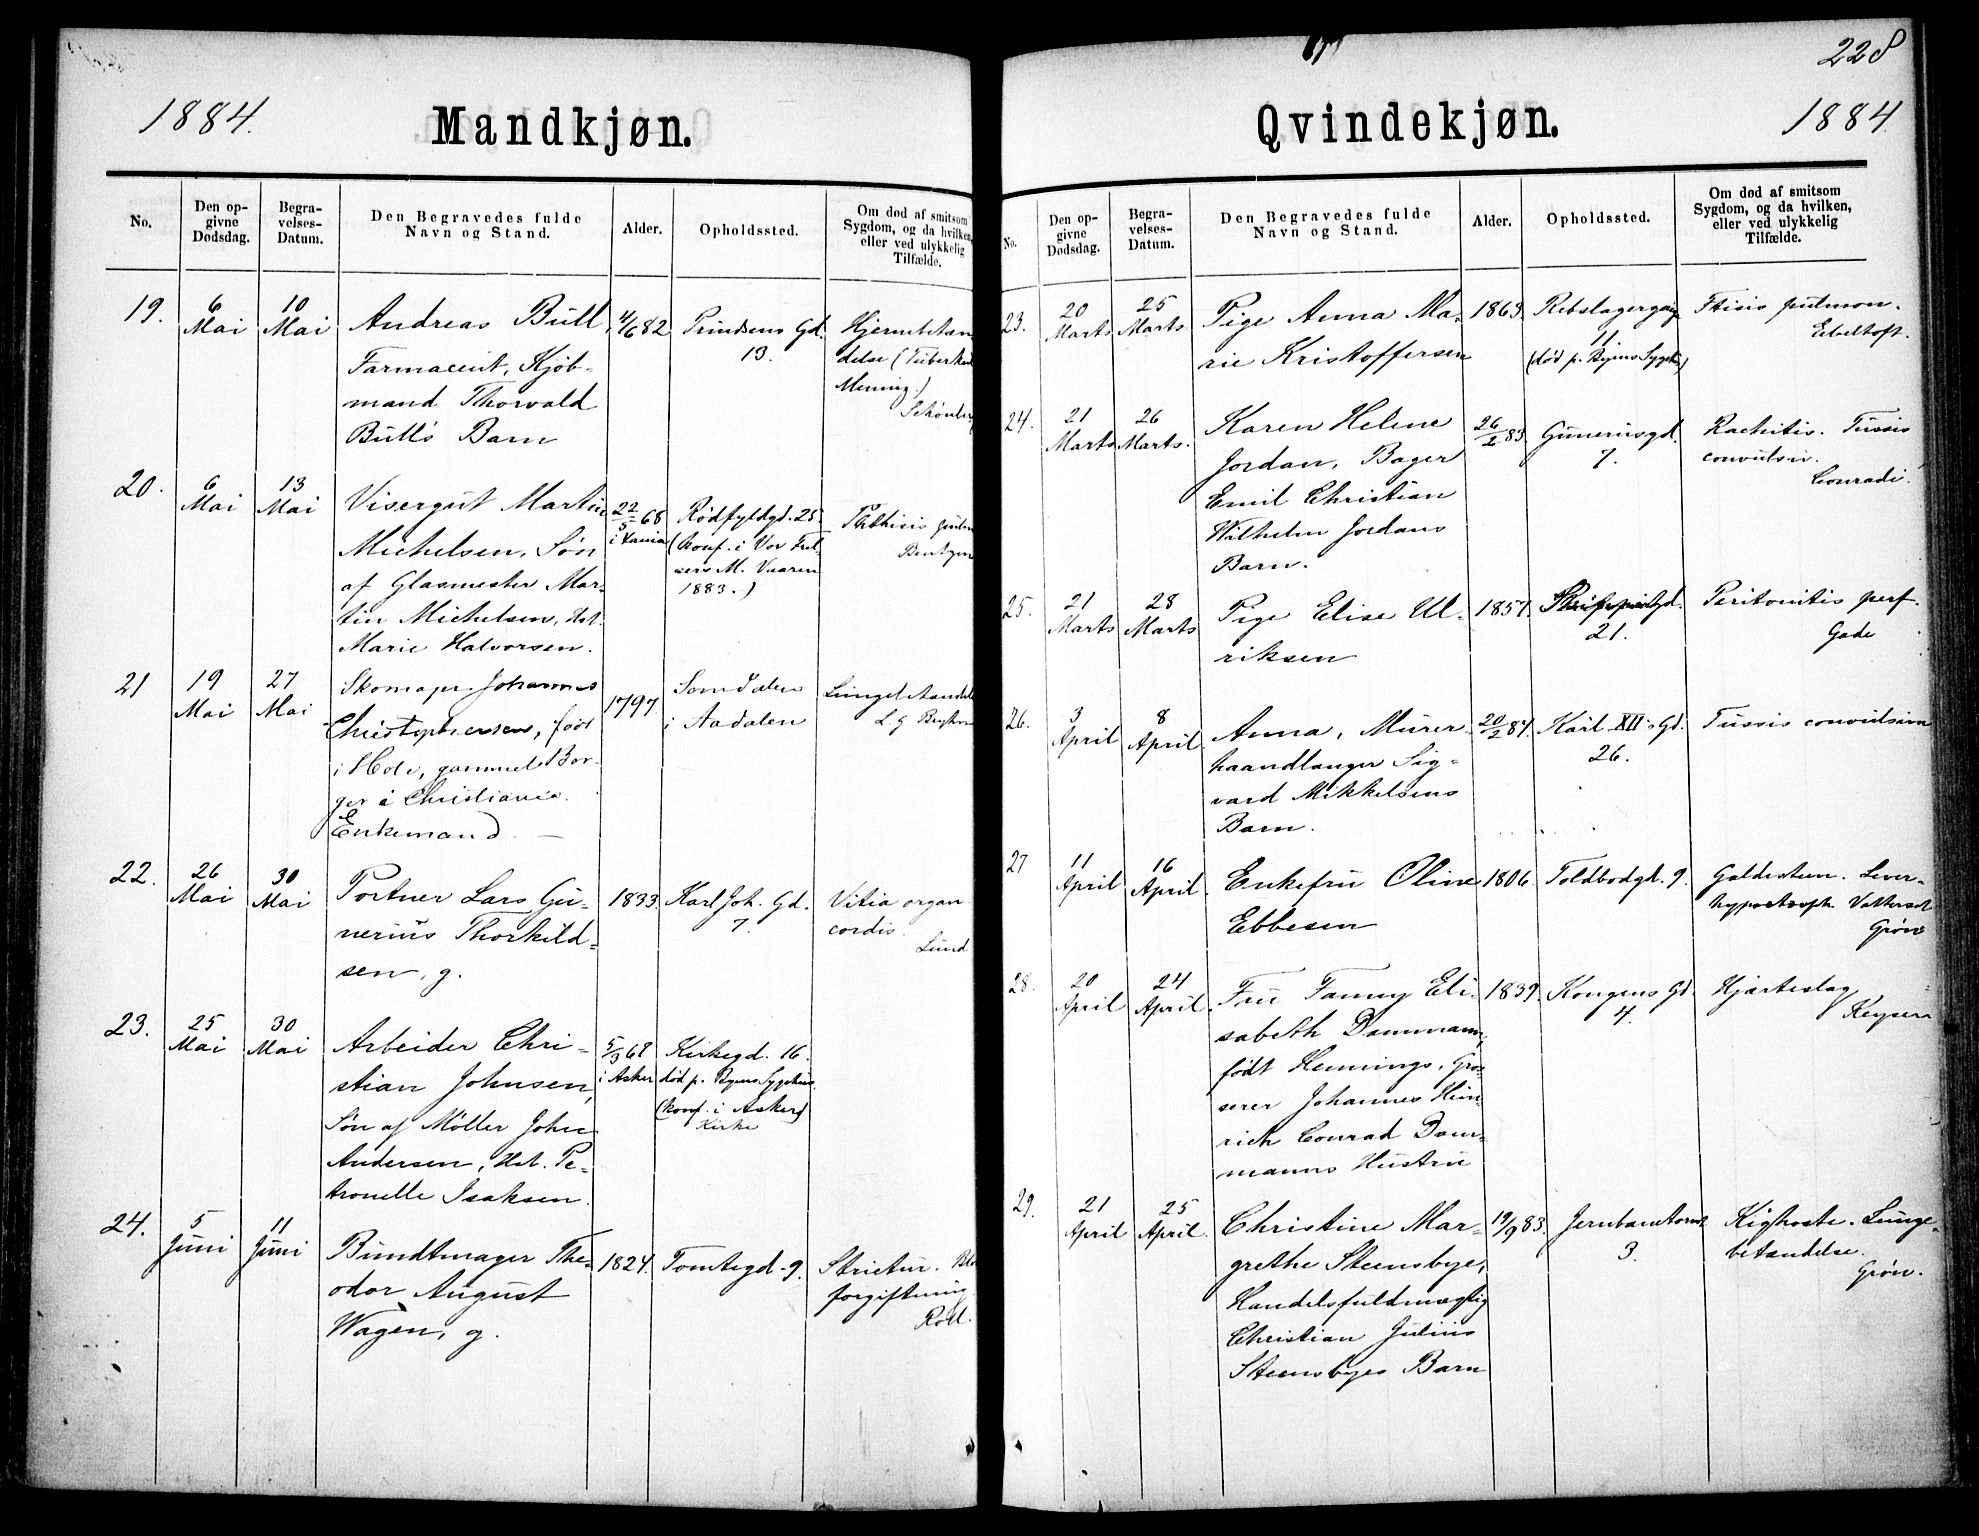 228
1884.
Mandkjøn.
No.
Den op-
givne
Dødsdag.
Begra-
velses-
Datum.
Den Begravedes fulde
Navn og Stand.
Alder.
Opholdssted.
Om død af smitsom
Sygdom, og da hvilken,
eller ved ulykkelig
Tilfælde.
19.
6
Mai
10
Mai
Andreas Bull,
Farmaceut, Kjøb-
mand Thorvald
Bulls Barn
4/6 82
Prindsens Gd.
13.
Hjernebetæn
delse (Tuberkul
Mening.)
20.
6
Mai
13
Mai
Visergut Martin
Michelsen, Søn
af Glasmester Mar-
tin Michelsen, Hst.
Marie Halvorsen.
22/5 68
i Xania
Rødfyldgd. 25.
(konf. i Vor Frel-
sers M. Vaaren
1883.)
Phthisis pulm
21
19
Mai
27
Mai
Skomager Johannes
Christophersen, født
i Hole, gammel Bor-
ger i Christiania.
Enkemand. —
1797.
Somdalen
i Aadalen
Lungebetændel
22.
26
Mai
30
Mai
Portner Lars Gu-
nerius Thorkild-
sen, g.
1833.
Karl Joh. Gd.
7.
Vitia organ
cordis.
Lund
23.
25
Mai
30
Mai
Arbeider Chri-
stian Johnsen,
Søn af Møller John
Andersen, Hst. Pe-
tronelle Isaksen.
5/3 67
i Asker
Kirkegd. 16.
død p. Byens Sygehus.
(konf. i Asker)
Kirke
24.
5
Juni
11
Juni
Bundtmager The-
odor August
Wagen, g.
1824.
Tomtegd. 9.
Strictur. Blo
forgiftning
Roll.
Qvindekjøn.
1884.
No.
Den op-
givne
Dødsdag.
Begra-
velses-
Datum.
Den Begravedes fulde
Navn og Stand.
Alder.
Opholdssted.
Om død af smitsom
Sygdom, og da hvilken,
eller ved ulykkelig
Tilfælde.
23.
20
Marts
25
Marts
Pige Anna Ma-
rie Kristoffersen
1863.
Rebslagergang
11
(død p. Byens Sygehus)
Ftisis pulmon.
Ebeltoft.
24.
21
Marts
26
Marts.
Karen Helene
Jordan, Bager
Emil Christian
Wilhelm Jordans
Barn.
26/2 83
Gunerusgd.
7.
Rachitis. Tussis
convulsiv.
Conradi.
25.
21
Marts
28
Marts
Pige Elise Ul-
riksen
1857.
21.
Peritonitis perf.
Gade
26.
3
April
8
April
Anna, Murer-
haandlanger Sig-
vard Mikkelsens
Barn.
20/2 84.
Karl XII's Gd.
26.
Tussis convulsiva
27
11
April
16
April.
Enkefru Oline
Ebbesen
1806.
Toldbodgd. 9.
Galdesteen. Lever-
hypertroph. Vattersot
Grøn
28.
20
April
24
April.
Fru Fanny Eli-
sabeth Dammann,
født Hennings, Gros-
serer Johannes Hin-
rich Conrad Dam-
manns Hustru
1839.
Kongens Gd.
4.
Hjærteslag
Keyser
29.
21
April
25
April.
Christine Mar-
grethe Steensbye,
Handelsfuldmægtig
Christian Julius
Steensbyes Barn
19/9 83.
Jernbanetorvet
3.
Kighoste. Lunge-
betændelse.
Grøn.